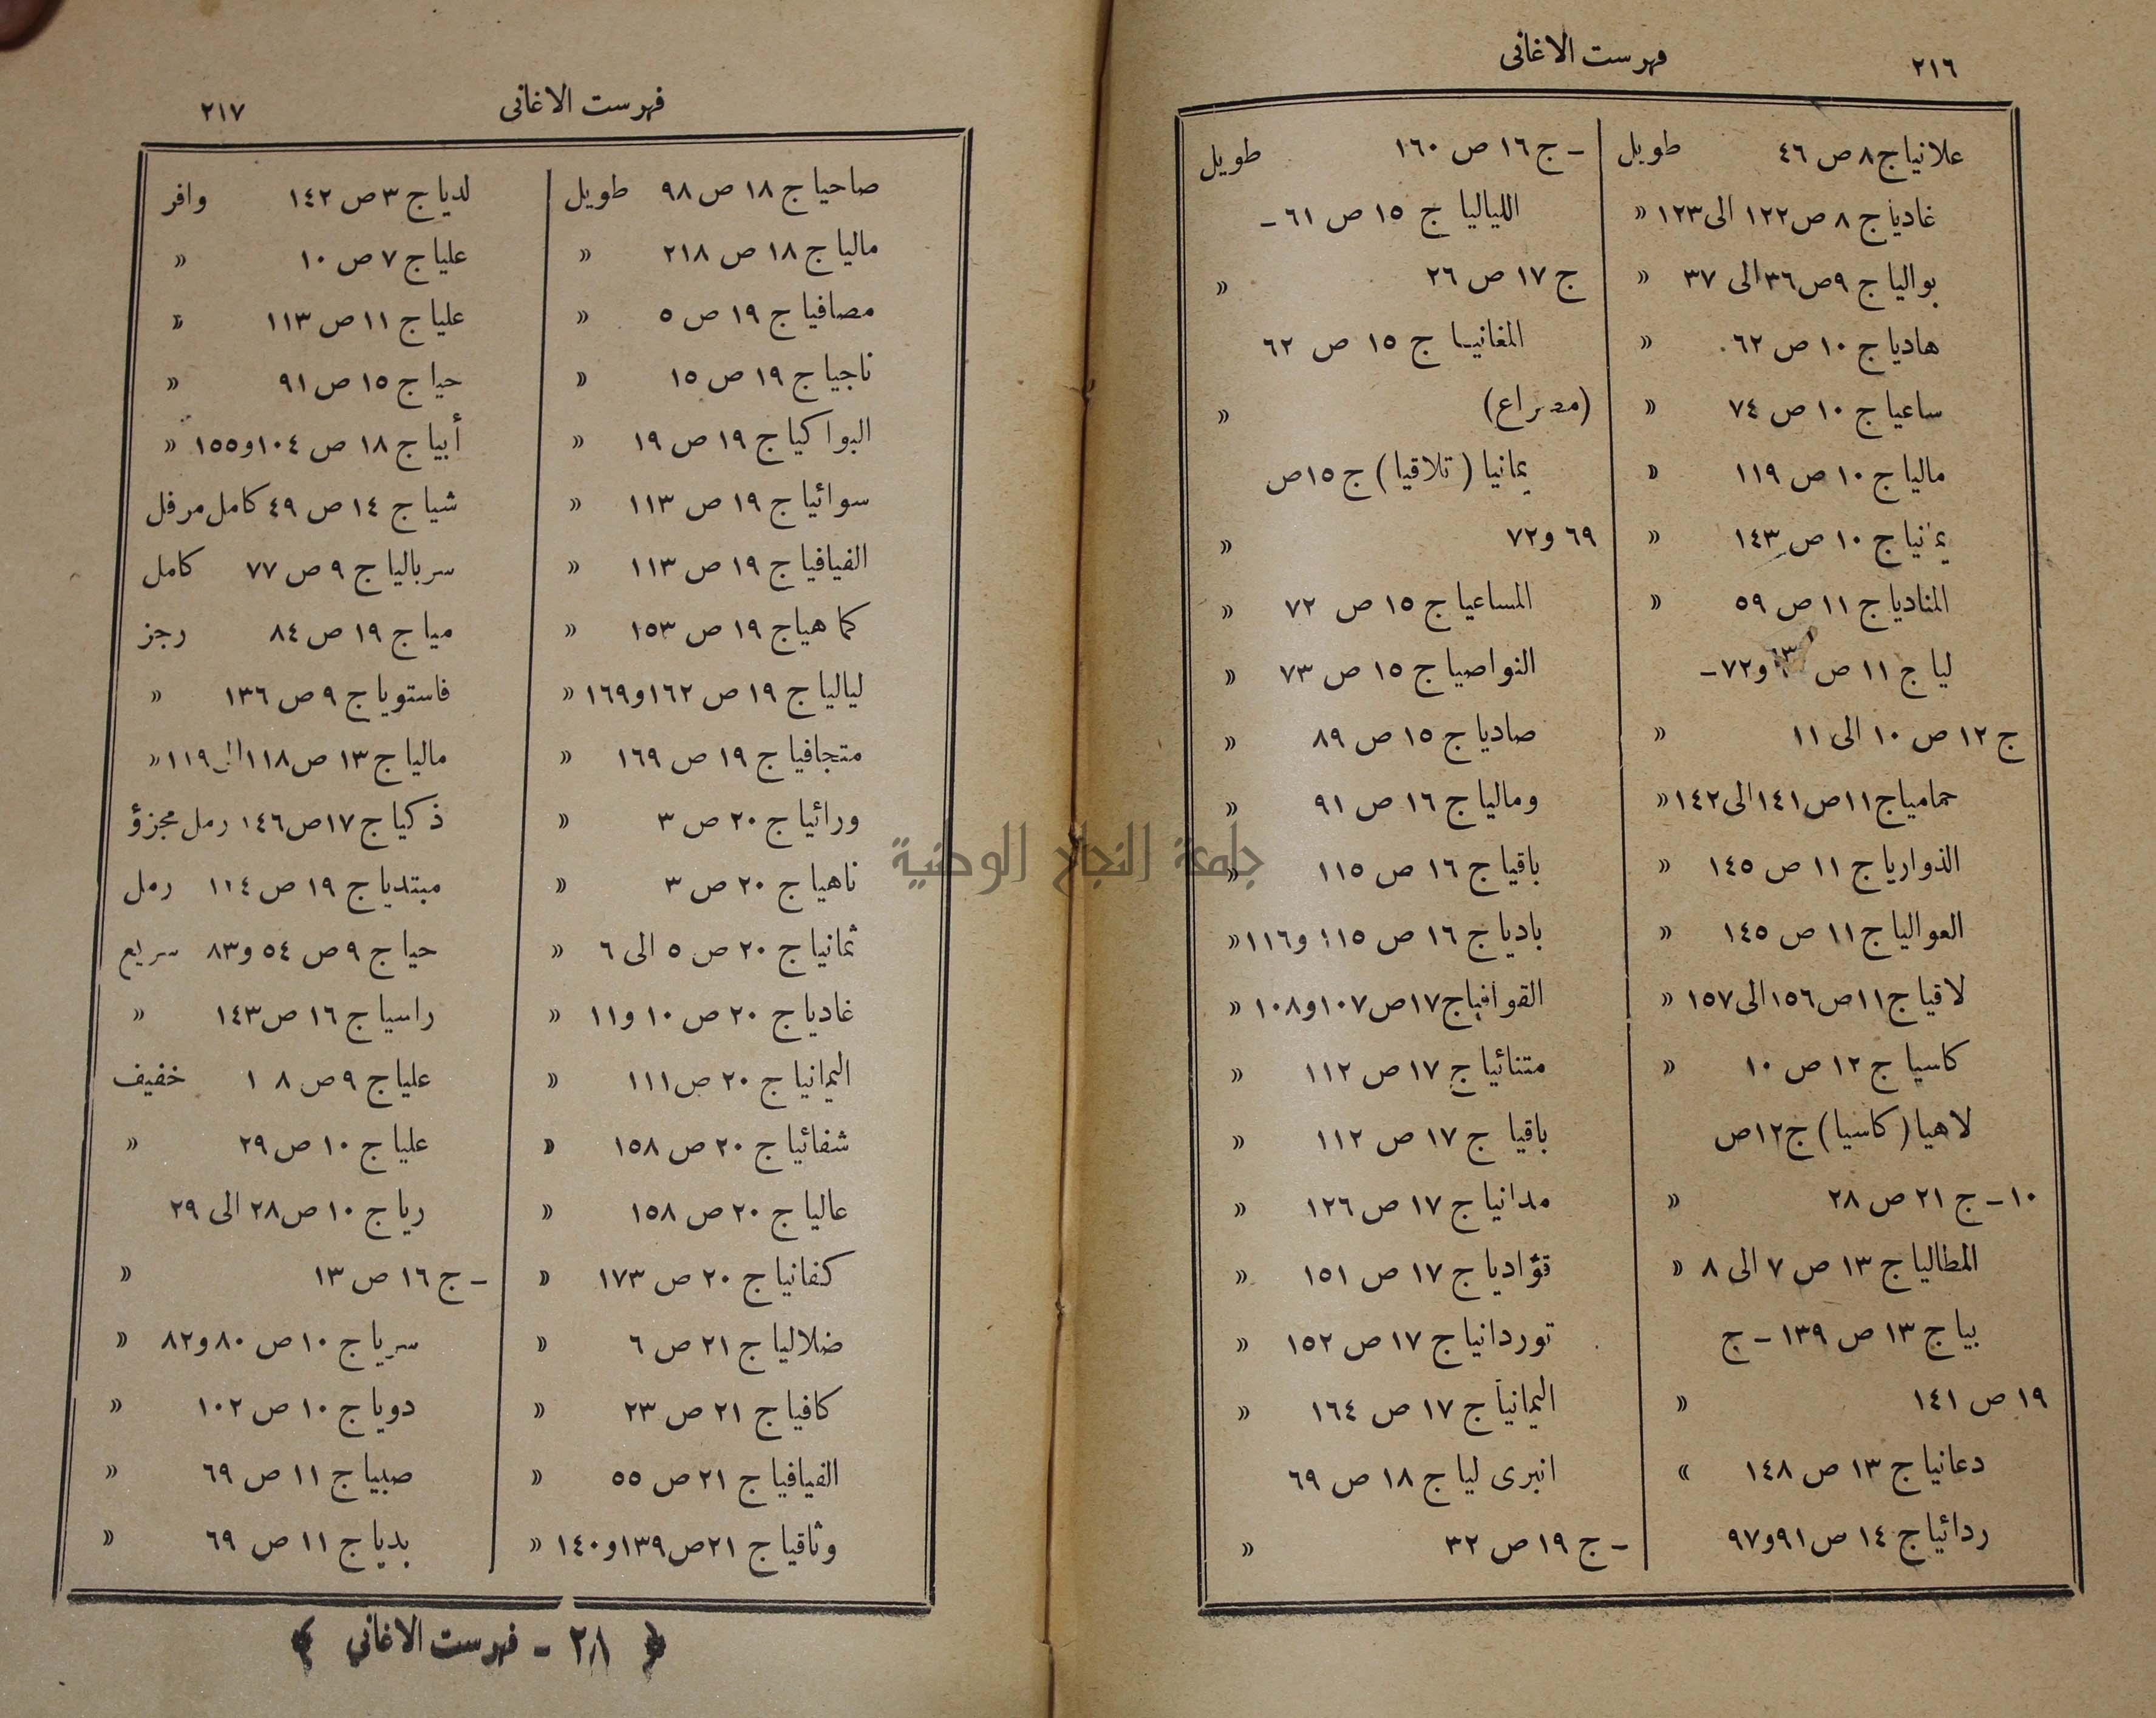 ٢١٦
فهرست الاغانى
علانيا ج ٨ ص ٤٦ طويل
غاديا ج ٨ ص ١٢٢ الى ١٢٣ «
بواليا ج ٩ ص ٣٦ الى ٣٧ «
هاديا ج ١٠ ص ٦٢ «
ساعيا ج ١٠ ص ٧٤ «
ماليا ج ١٠ ص ١١٩ «
يمانيا ج ١٠ ص ١٤٣ «
المناديا ج ١١ ص ٥٩ «
ليا ج ١١ ص و٧٢ –
ج ١٢ ص ١٠ الى ١١ «
حماميا ج ١١ ص ١٤١ الى ١٤٢ «
الذواريا ج ١١ ص ١٤٥ «
العواليا ج ١١ ص ١٤٥ «
لاقيا ج ١١ ص ١٥٦ الى ١٥٧ «
كاسيا ج ١٢ ص ١٠ «
لاهيا (كاسيا) ج ١٢ ص
١٠ – ج ٢١ ص ٢٨ «
المطاليا ج ١٣ ص ٧ الى ٨ «
بيا ج ١٣ ص ١٣٩ – ج
١٩ ص ١٤١ «
دعانيا ج ١٣ ص ١٤٨ »
ردائيا ج ١٤ ص ٩١ و٩٧
– ج ١٦ ص ١٦٠ طويل
اللياليا ج ١٥ ص ٦١ –
ج ١٧ ص ٢٦ «
المغانيا ج ١٥ ص ٦٢
(مصراع) «
يمانيا (تلاقيا) ج ١٥ ص
٦٩ و٧٢ «
المساعيا ج ١٥ ص ٧٢ «
النواصيا ج ١٥ ص ٧٣ «
صاديا ج ١٥ ص ٨٩ «
وماليا ج ١٦ ص ٩١ «
باقيا ج ١٦ ص ١١٥ «
باديا ج ١٦ ص ١١٥ و١١٦ «
القوافيا ج ١٧ ص ١٠٧ و١٠٨ «
متنائيا ج ١٧ ص ١١٢ «
باقيا ج ١٧ ص ١١٢ «
مدانيا ج ١٧ ص ١٢٦ «
فؤاديا ج ١٧ ص ١٥١ «
توردانيا ج ١٧ ص ١٥٢ «
اليمانيا ج ١٧ ص ١٦٤ «
انبرى ليا ج ١٨ ص ٦٩
– ج ١٩ ص ٣٢ «
فهرست الاغانى
٢١٧
صاحيا ج ١٨ ص ٩٨ طويل
ماليا ج ١٨ ص ٢١٨ «
مصافيا ج ١٩ ص ٥ «
ناجيا ج ١٩ ص ١٥ «
البواكيا ج ١٩ ص ١٩ «
سوائيا ج ١٩ ص ١١٣ «
الفيافيا ج ١٩ ص ١١٣ «
كما هيا ج ١٩ ص ١٥٣ «
لياليا ج ١٩ ص ١٦٢ و١٦٩ «
متجافيا ج ١٩ ص ١٦٩ «
ورائيا ج ٢٠ ص ٣ «
ناهيا ج ٢٠ ص ٣ «
ثمانيا ج ٢٠ ص ٥ الى ٦ «
غاديا ج ٢٠ ص ١٠ و١١ «
اليمانيا ج ٢٠ ص ١١١ «
شفائيا ج ٢٠ ص ١٥٨ «
عاليا ج ٢٠ ص ١٥٨ «
كفانيا ج ٢٠ ص ١٧٣ «
ضلاليا ج ٢١ ص ٦ «
كافيا ج ٢١ ص ٢٣ «
الفيافيا ج ٢١ ص ٥٥ «
وثاقيا ج ٢١ ص ١٣٩ و١٤٠ «
لديا ج ٣ ص ١٤٢ وافر
عليا ج ٧ ص ١٠ «
عليا ج ١١ ص ١١٣ «
حيا ج ١٥ ص ٩١ «
أبيا ج ١٨ ص ١٠٤ و١٥٥ «
شيا ج ١٤ ص ٤٩ كامل مرفل
سرباليا ج ٩ ص ٧٧ كامل
ميا ج ١٩ ص ٨٤ رجز
فاستويا ج ٩ ص ١٣٦ «
ماليا ج ١٣ ص ١١٨ الى ١١٩ «
ذكيا ج ١٧ ص ١٤٦ رمل مجزؤ
مبتديا ج ١٩ ص ١١٤ رمل
حيا ج ٩ ص ٥٤ و٨٣ سريع
راسيا ج ١٦ ص ١٤٣ «
عليا ج ٩ ص ٨ ١ خفيف
عليا ج ١٠ ص ٢٩ «
ريا ج ١٠ ص ٢٨ الى ٢٩
– ج ١٦ ص ١٣ «
سريا ج ١٠ ص ٨٠ و٨٢ «
دويا ج ١٠ ص ١٠٢ «
صبيا ج ١١ ص ٦٩ «
بديا ج ١١ ص ٦٩ «
﴿ ٢٨ – فهرست الاغانى ﴾
جامعة النجاح الوطنية